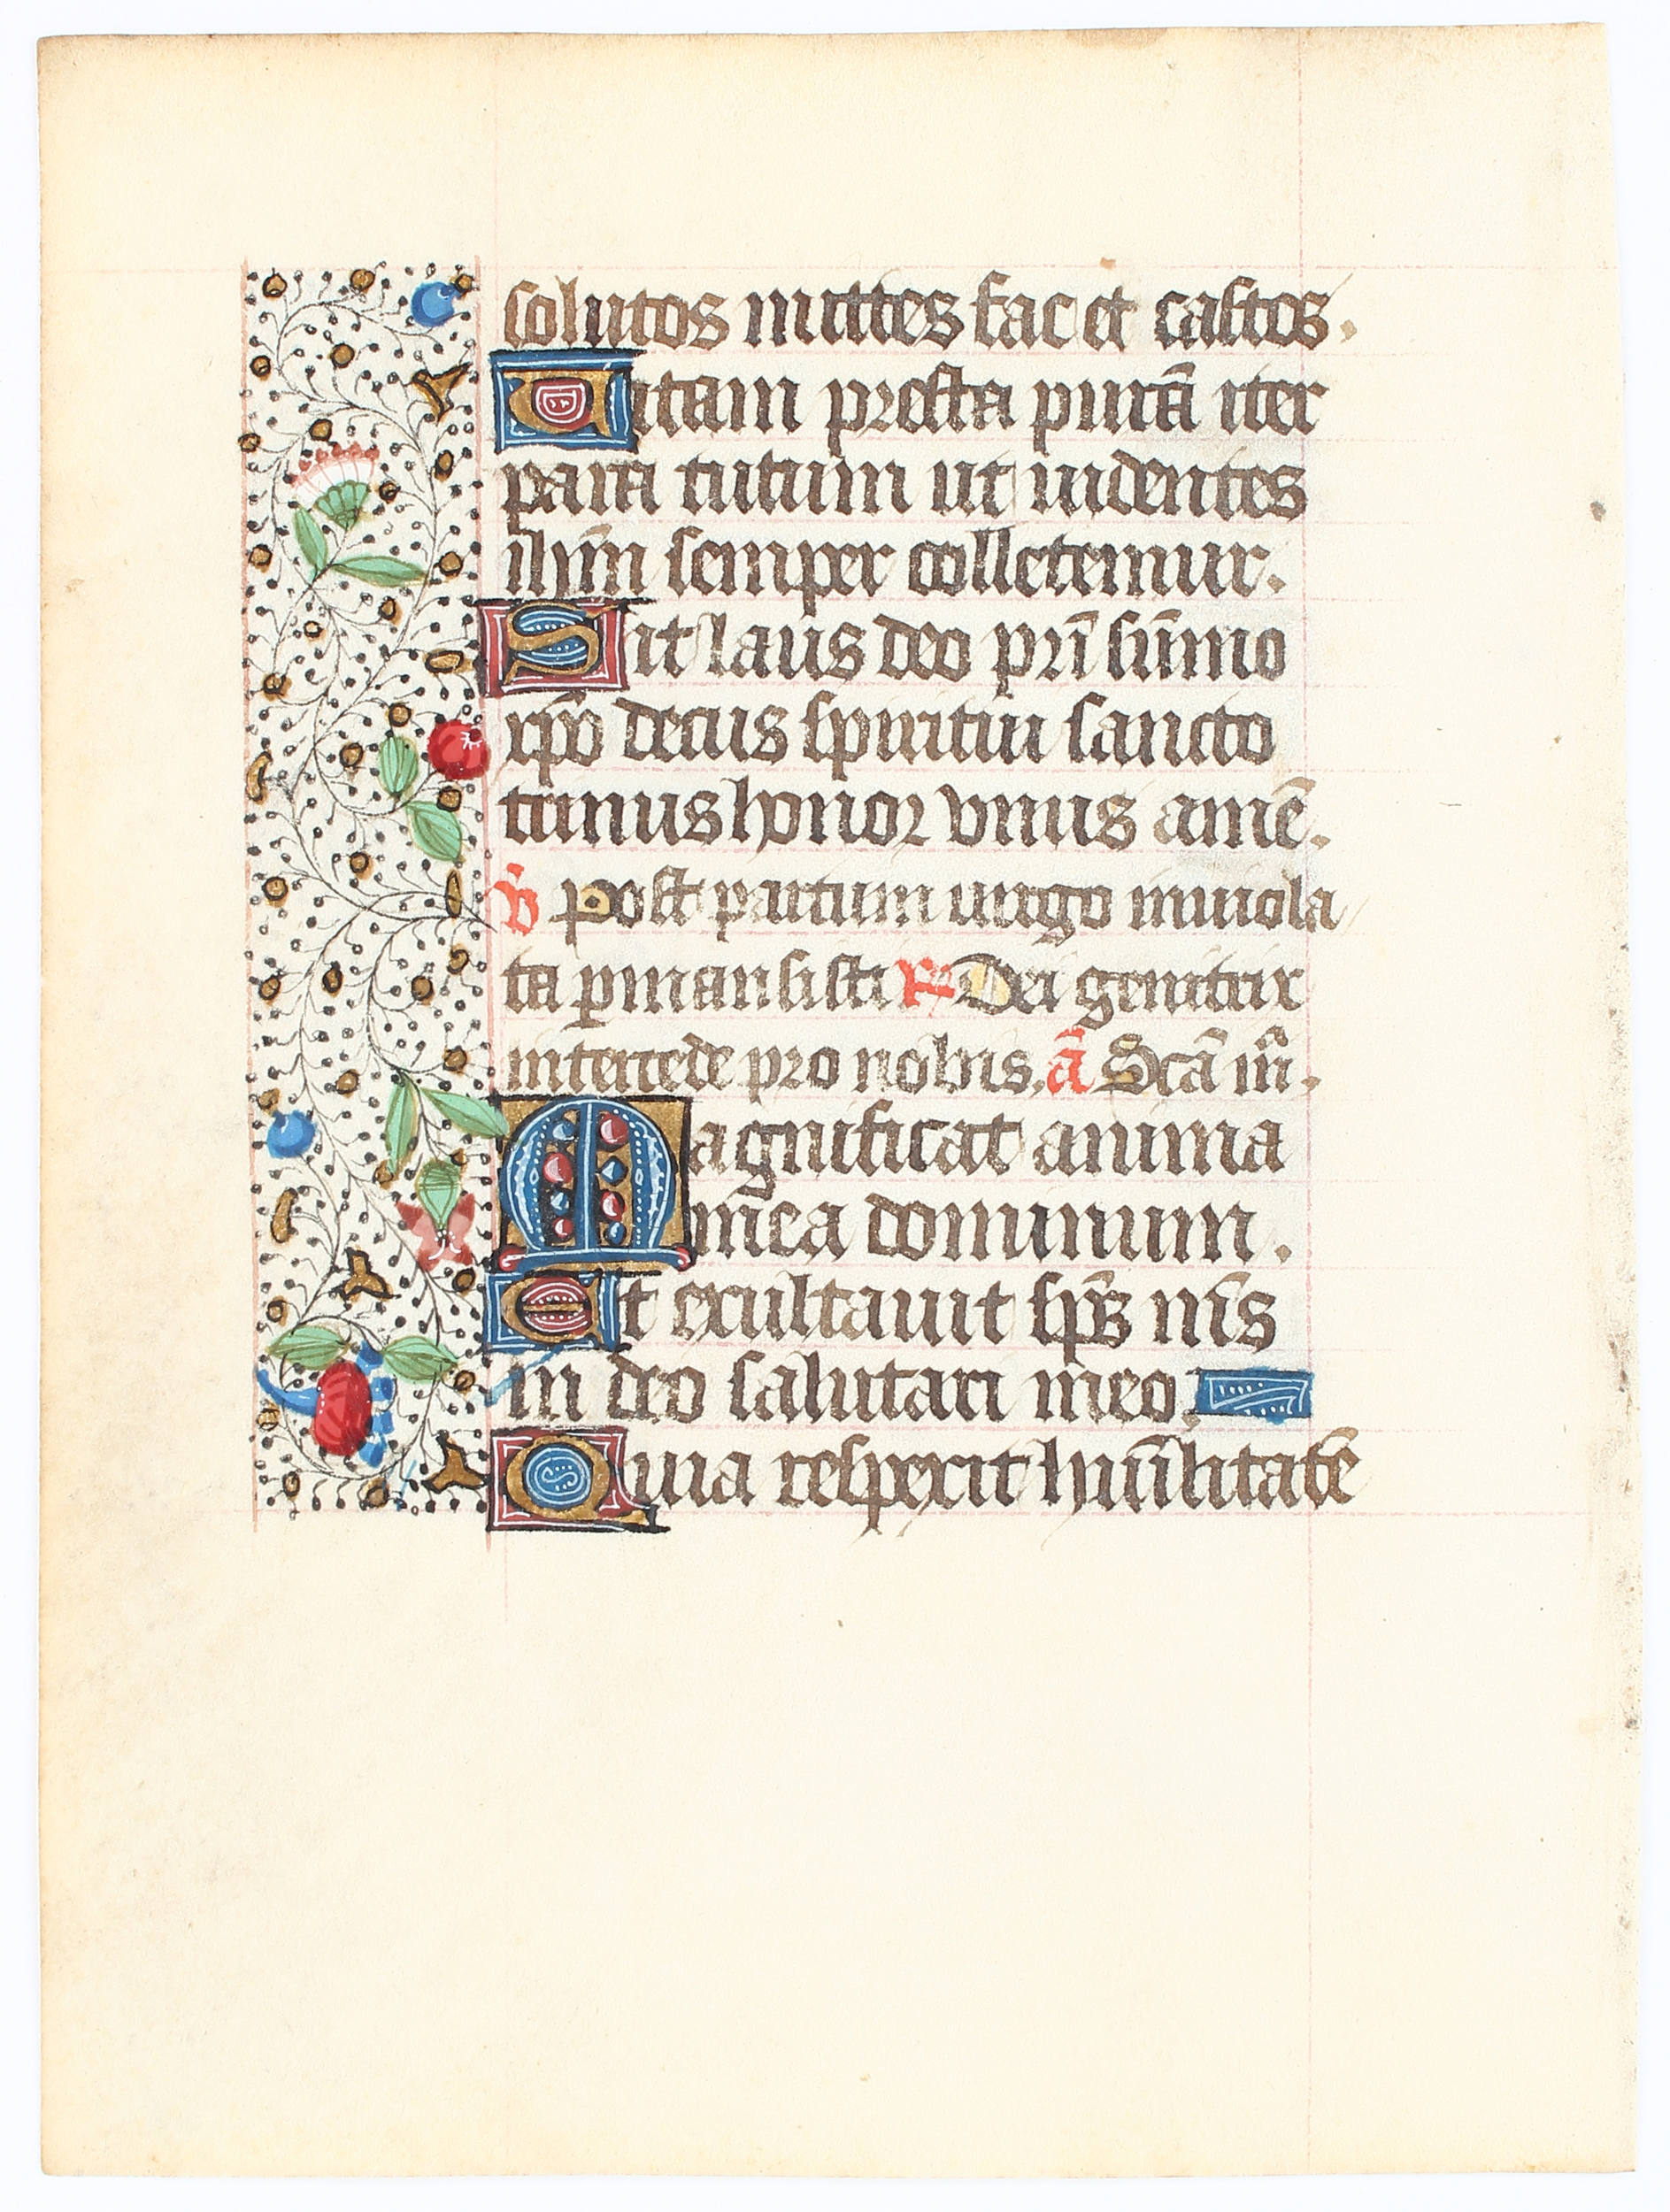 solutos mittes fac et castos.
Uitam presta purã iter
para tutum ut uidentes
ihm̃ semper colletemur.
Sit laus deo pr̃i sũmo
xp̃o decus spiritui sancto
trinus honor vnus amẽ.
v̉ Post partum uirgo inuiola
ta ꝑmansisti ℟ Dei genitrix
intercede pro nobis. ã Scã m̃.
Magnificat anima
mea dominum.
Et exultauit sp̃s m̃s
in deo salutari meo.
Quia respexit hũilitatẽ